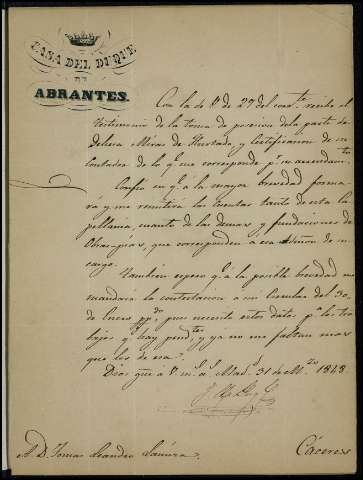 CASA DEL DUQUE
DE
ABRANTES.
Con la de V. de 27 del corr.te recibo el
testimonio de la toma de posesion de la parte de
dehesa Miras de Hurtado, y certificacion de
contados de lo q.e me corresponde p.r su arrendam.to
Confio en q.e á la mayor brevedad forma-
rá y me remitirá las cuentas tanto de esta Ca-
pellania cuanto de las demas y fundaciones de
Obras-pias, que corresponden á esa Admon de su
cargo.
Tambien espero q.e á la posible brevedad me
mandará la contestacion á mi Circular del 30
de Enero pp.do, pues necesito estos datos p.a los tra-
bajos q.e hay pend.tes y ya no me faltan mas
que los de esa.
Dios gue á V. m. a. Mad. 31 de M.zo 1848
A D. Tomas Leandro
Cáceres